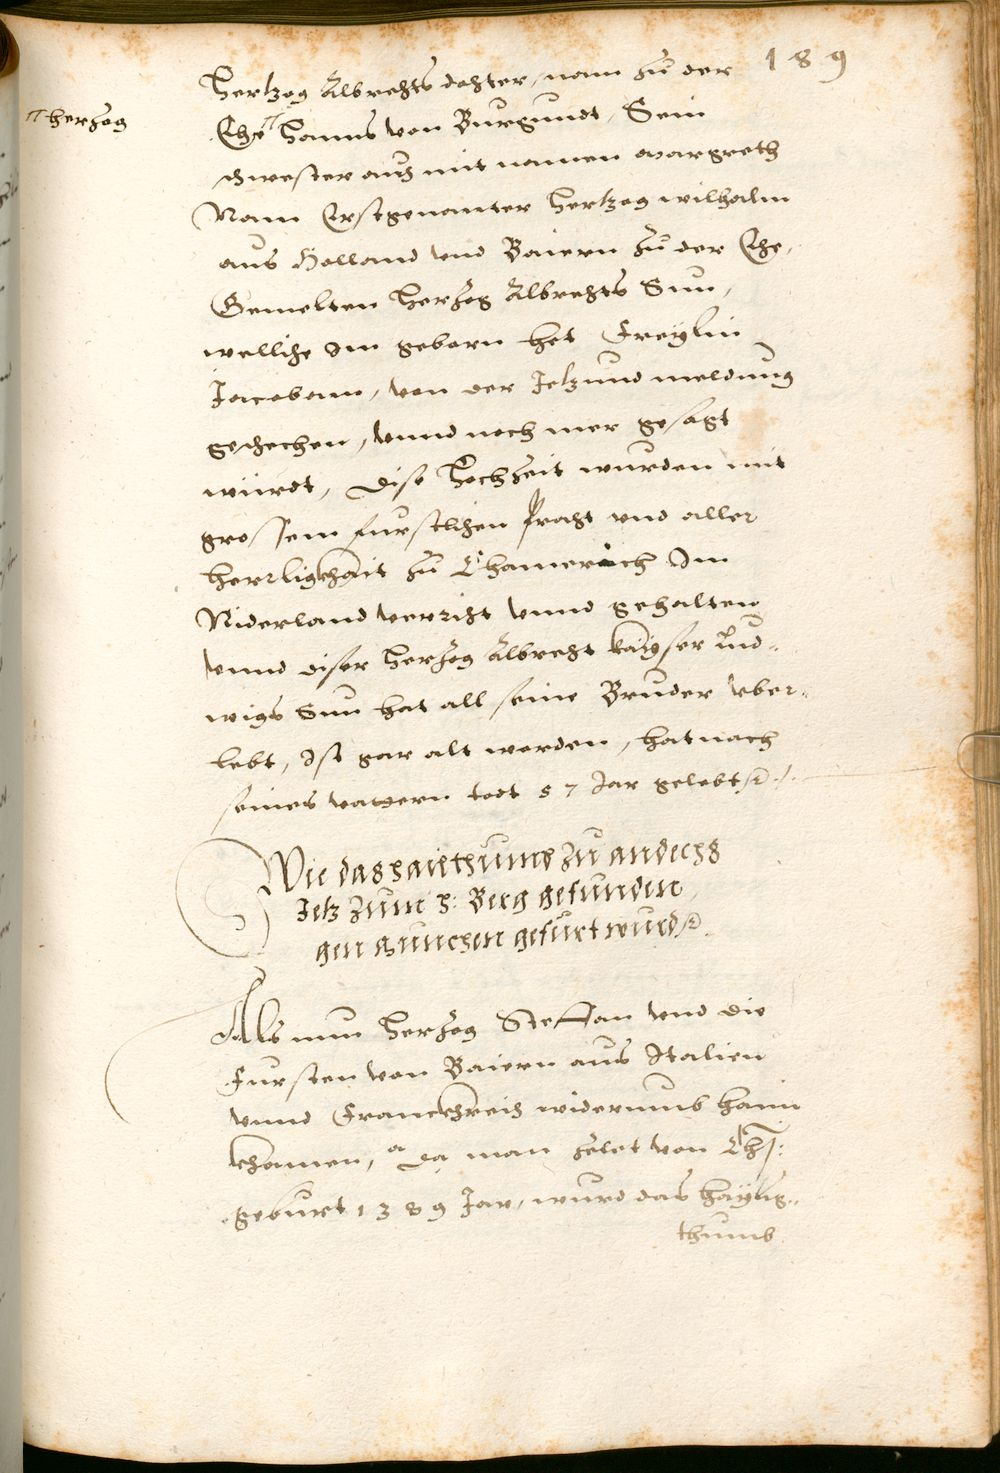 189
Hertzog Albrechts dochter, nam zu der
⊓ herzog
Ehe ⊓ Hanns von Burgundt, Sein
schwester auch mit namen Margreth
Nam Erstgenanter Hertzog wilhalm
aus Holland und Baiern zu der Ehe,
Gemelten Herzog Albrechts Sun,
welliche im geborn het Freylin
Jacobam, von der Jetzund meldung
geschechen, unnd noch mer gesagt
würdt, Dise Hochzeit wurden mit
grossem furstlichen Pracht und aller
herrligkhait zu Chamerich Im
Niderland verricht unnd gehalten
unnd diser Herzog Albrecht kayser Lud-
wigs Sun hat all seine Bruder uber-
lebt, Ist gar alt worden, hat nach
seines vattern todt 57 Jar gelebt etc.
Wie das haietthumb zu andechs
Jetz zum h: Berg gefunden
gen München gefürt wurd etc.
Als nun Herzog Steffan und die
Fursten von Baiern aus Italien
unnd Franckhreich widerumb haim
khamen, da man zelet von Chr:
geburt 1389 Jar, wurd das haylig-
thumb